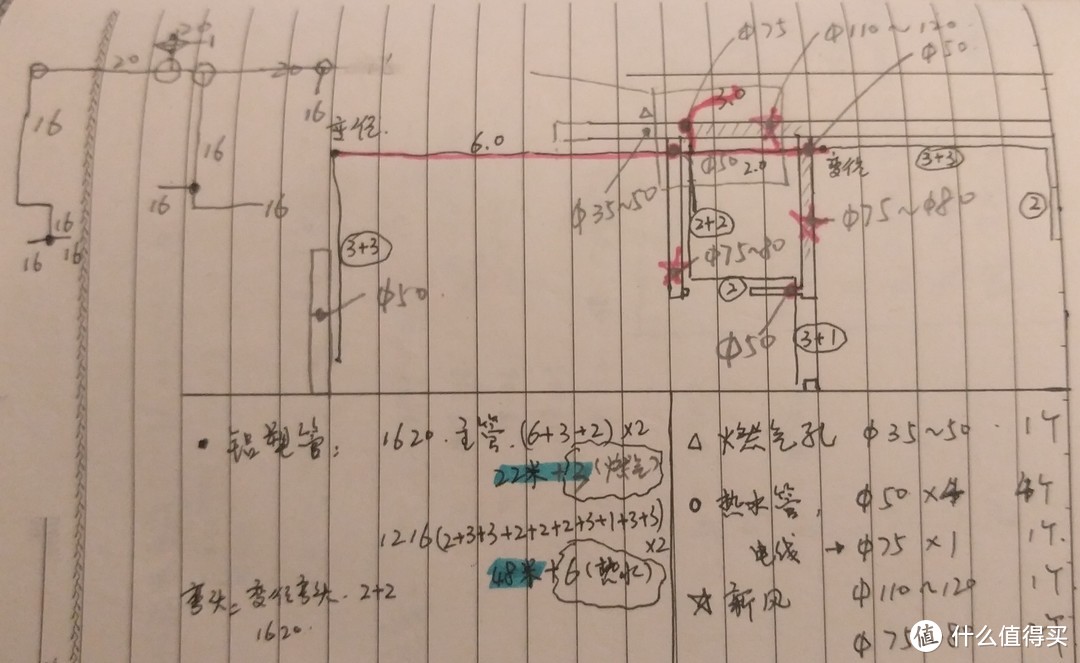 20
20
20
16
16
16
16
16
16
16
16
变径
6.0
3.0
Φ75
Φ110~120
Φ50
△
Φ50 2.0
变径
3+3
2
Φ35~50
2+2
Φ75~80
Φ75~Φ80
3+3
Φ50
2
Φ50
3+1
· 铝塑管: 1620·主管.(6+3+2)×2
22米+12(燃气)
1216(2+3+3+2+2+2+3+1+3+3)
×2
48米+6(热水)
弯头= 变径弯头. 2+2
1620.
△ 燃气孔 Φ35~50 · 1个
○ 热水管, Φ50×4 4个
电线→Φ75×1 1个.
☆ 新风 Φ110~120 1个
Φ75 80
值 什么值得买